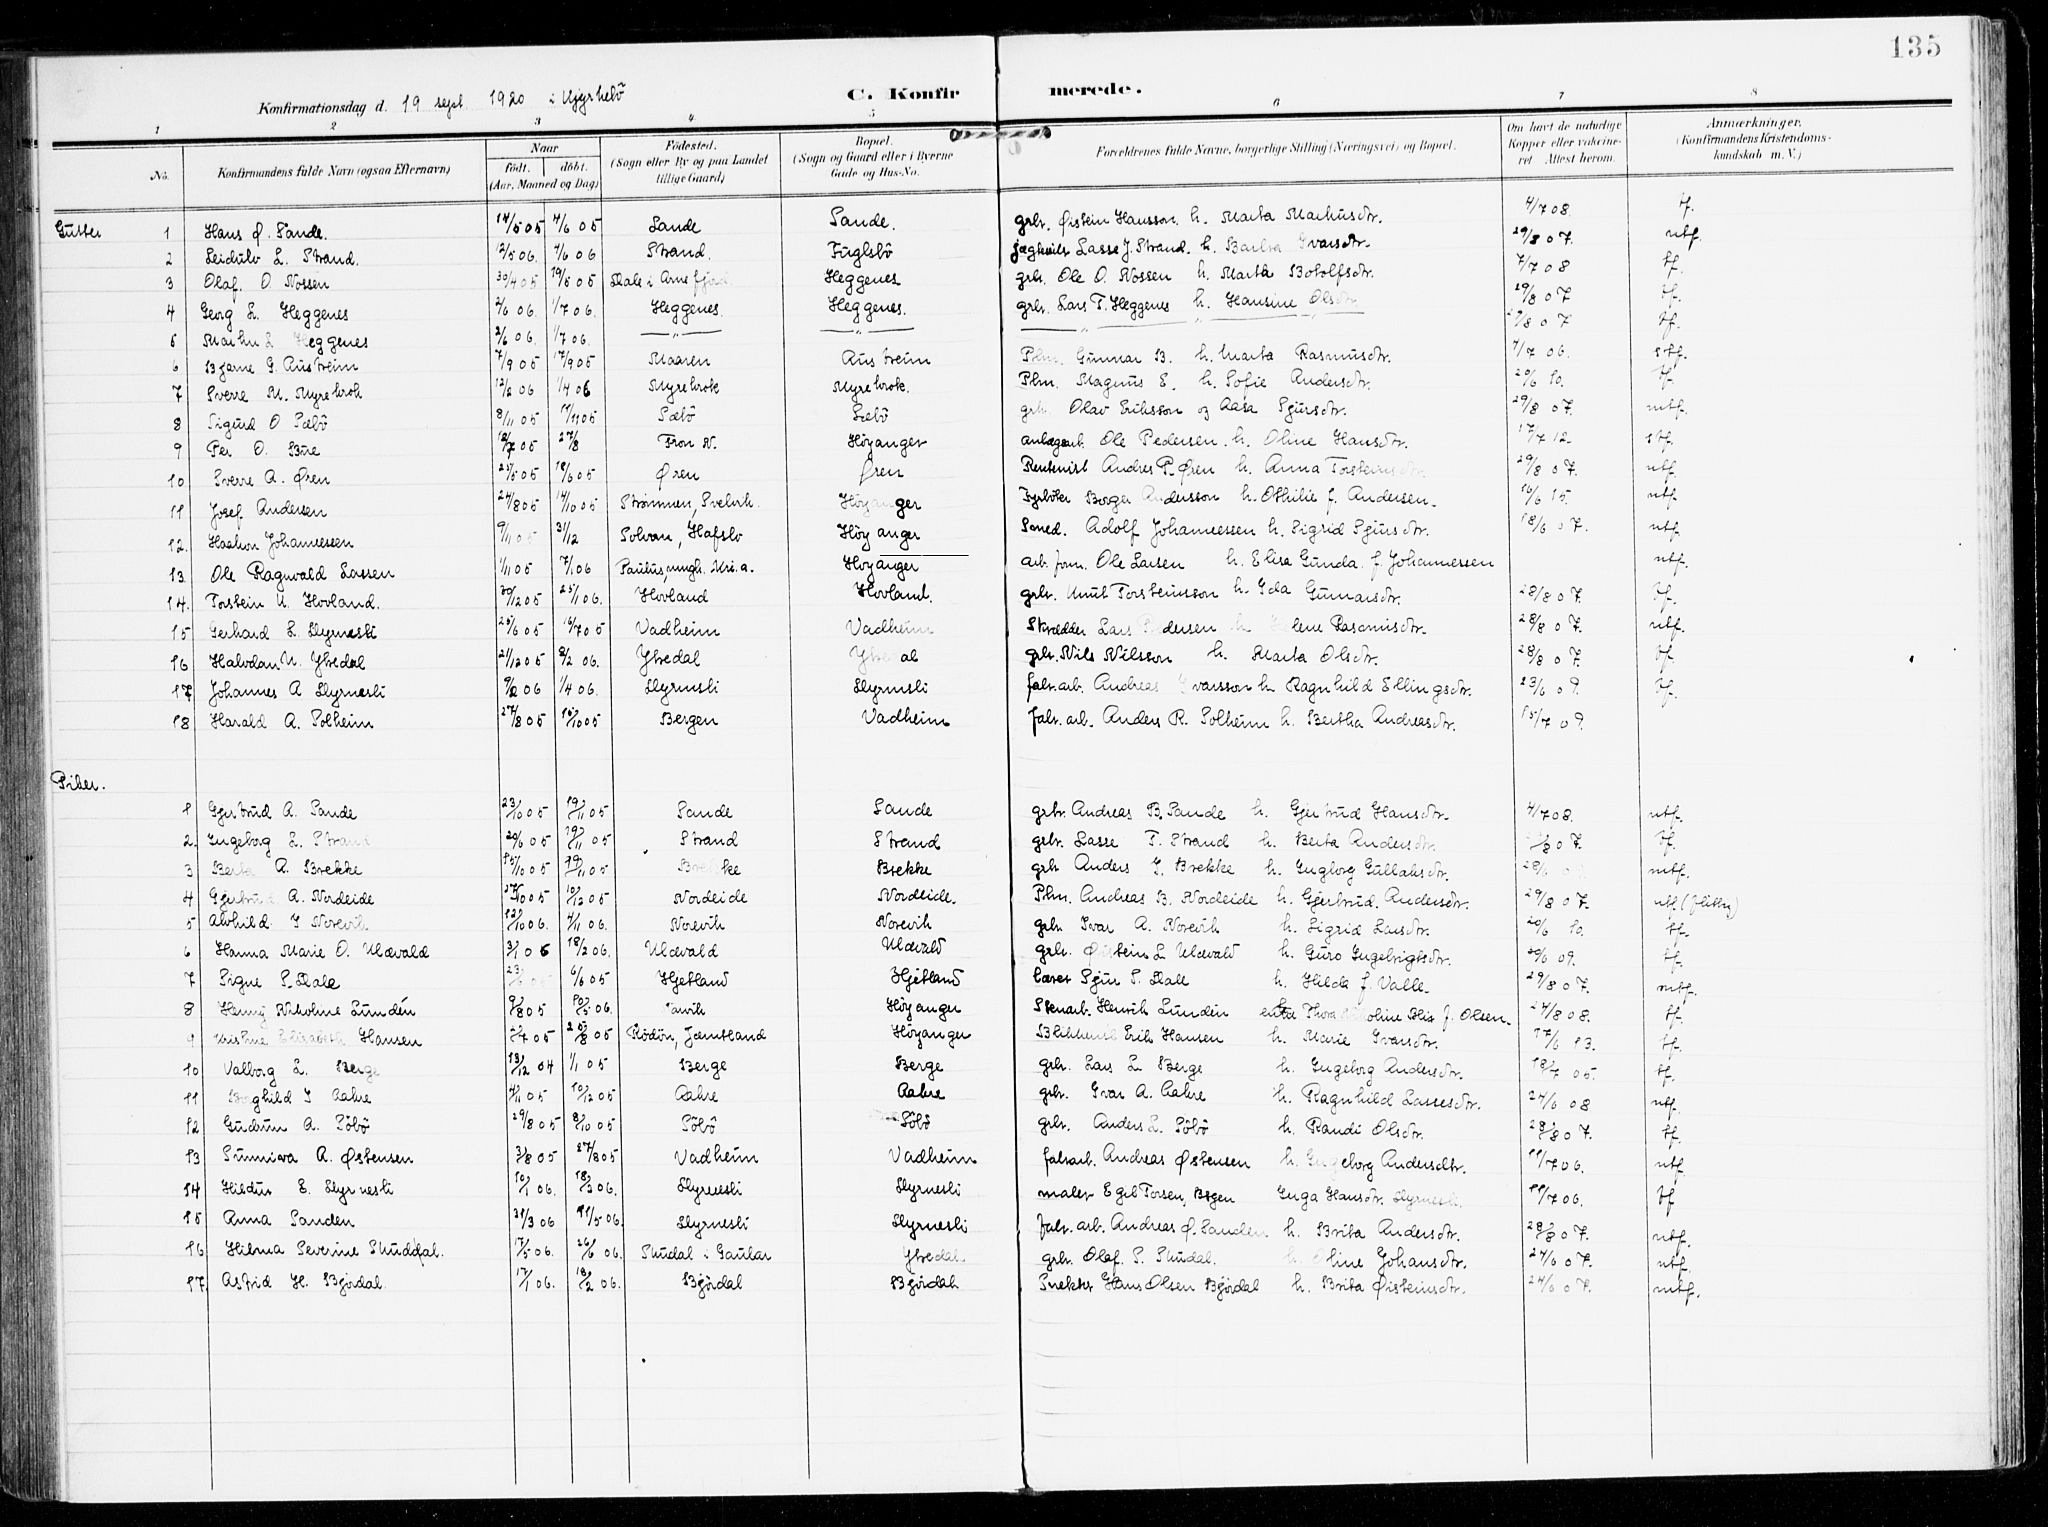 135
Konfirmationsdag d. 19 sept. 1920 i Kyrkebö
C. Konfirmerede.
1 2 3 4 5 6 7 8
No. Konfirmandens fulde Navn (ogsaa Efternavn) Naar født. døbt. (Aar, Maaned og Dag) Fødested. (Sogn eller By og paa Landet tillige Gaard) Bopæl. (Sogn og Gaard eller i Byerne Gade og Hus-No. Forældrenes fulde Navne, borgerlige Stilling (Næringsvei) og Bopæl. Om havt de naturlige Kopper eller vakcineret Attest herom. Anmærkninger. (Konfirmandens Kristendomskundskab m. V.)
Gutter 1 Hans Ø. Sande. 14/5 05 4/6 05 Sande Sande. grbr. Øistein Hansson. h. Marta Markusdtr. 4/7 08. tf.
2 Leidulv L. Strand. 12/5 06. 4/6 06 Strand. Fuglsbö Lasse J. Strand. h. Ivarsdtr. 29/8 07. ntf.
3 Olaf. O. Nossen 30/4 05 19/5 05 Dale i Arnefjord Heggenes grbr. Ole O. Nossen h. Marta Botolfsdtr. 7/7 08 tf.
4 Georg L. Heggenes 2/6 06. 1/7 06. Heggenes. Heggenes. grbr. Lars T. Heggenes h. Hansine Olsdtr. 29/8 07 tf.
5 L Heggenes 2/6 06. 1/7 06. — " — — " — — " — 29/8 07 tf.
6 Bjarne G. Austreim 7/9 05 17/9 05 Maaren Austreim Plm. Gunnar B. h. Marta Rasmusdtr. 7/7 06. stf.
7 Sverre M. Myrekrok 12/2 06 1/4 06 Myrekrok Myrekrok. Plm. Magnus E. h. Sofie Andersdtr. 20/6 10. tf.
8 Sigurd O Sæbö 8/11 05 Sæbö Sæbö grbr. Olav Eriksson og Aasa Sjursdtr. 29/8 07. mtf.
9 Per O. Bue 27/8 Fron N. Höyanger anlægsarb. Ole Pedersen. h. Oline Hansdtr. 17/7 12. stf.
10 Sverre A. Øren 25/5 05 18/6 05 Øren Øren Rentenist Andres P. Øren h. Anna Torsteinsdtr. 29/8 07. ntf.
11 Josef Andersen 24/8 05 14/10 05 Strømmen, Svelvik. Höyanger Fyrböter Borger Andersson h. Othilie f. Andersen. 16/6 15. ntf.
12. Haakon Johannessen 9/11 05 31/12 Solvorn, Hafslo Höyanger Smed. Adolf Johannessen h. Sigrid Sjursdtr. 18/6 07. ntf.
13 Ole Ragnvald Larsen 1/11 05 7/1 06 Paulus, mngh. Kri.a. Höyanger arb. form. Ole Larsen h. Elisa Gunda f. Johannessen ntf.
14. Torstein K. Hovland. 30/12 05 25/1 06. Hovland Hovland. grbr. Knut Torsteinsson h. Ida Gunnarsdtr. 28/8 07. tf.
15 Gerhard L. Dyrnesli 25/6 05 16/7 05 Vadheim Vadheim Skrædder Lars Pedersen h. Helene Rasmusdtr. 28/8 07. ntf.
16 Halvdan N. Ytredal 21/12 05 8/2 06. Ytredal Ytredal grbr. Nils Nilsson h. Marta Olsdtr. 28/8 07. tf
17 Johannes A Dyrnesli 9/2 06 1/4 06. Dyrnesli Dyrnesli fabr.arb. Andreas Ivarsson h. Ragnhild Ellingsdtr. 23/6 09. tf.
18 Harald A. Solheim 27/8 05 15/10 05 Bergen Vadheim fabr.arb. Anders R. Solheim h. Bertha Andreasdtr. 15/7 09.
Piker.
1 Gjertrud A. Sande 23/10 05 19/11 05 Sande Sande grbr. Andreas B. Sande h. Gjertrud Hansdtr. 4/7 08. ntf.
2. Ingeborg L. Strand 19/11 05 Strand Strand grbr. Lasse T. Strand h. Berta Andersdtr. 07. tf.
3 Berta A. Brekke 15/10 05 19/11 05 Brekke Brekke grbr. Anders G. Brekke h. Ingborg Gullaksdtr. mtf.
4 Gjertrud A. Nordeide 27/10 05 10/12 05 Nordeide Nordeide. Plm. Andreas B. Nordeide h. Gjertrud. Andersdtr. 29/8 07. ntf. (flittig)
5 Alvhild I Norevik 12/10 06. 4/11 06. Norevik Norevik grbr. Ivar A. Norevik h. Sigrid Larsdtr. 20/6 10. tf.
6 Hanna Marie O. Ulævald 3/1 06 18/2 06. Ulævald Ulævald grbr. Øistein L Ulævald h. Guro Ingebrigtsdtr. 20/6 09. tf.
7 Signe S. Dale 6/6 05 Hjetland Hjetland Lærer Sjur S. Dale h. Hilda f. Valle. 29/8 07. mtf.
8 Henny Nikoline Lundén 9/8 05 Höyanger Stenarb. Henrik Lunden f. Olsen. 24/8 08. tf.
9 Kristine Elisabeth Hansen Rödön, Jæmtland Höyanger Erik Hansen h. Marie Ivarsdtr. 17/6 13. tf.
10 Valborg L. Berge 13/12 04 1/1 05 Berge Berge grbr. Lars L. Berge h. Ingeborg Andersdtr. tf.
11 Borghild I Aahre 4/11 05 10/12 05 Aahre Aahre grbr. Ivar A. Aahre h. Ragnhild Lassesdtr. 24/6 08 ntf.
12 Gudrun A. Söbö 29/8 05 8/10 05 Söbö Söbö grbr. Anders L. Söbö h. Randi Olsdtr. 28/8 07. tf.
13 Sunniva A. Østensen 3/8 05 27/8 05 Vadheim Vadheim fabrarb. Andreas Østensen h. Ingeborg Andersdtr. 11/7 06. ntf.
14 Hildur E. Dyrnesli 10/1 06. 18/3 06. Dyrnesli Dyrnesli maler Egil Torsen, Bergen Inga Hansdtr. Dyrnesli. 11/7 06. tf
15 Anna Sanden 31/3 06 11/5 06. Dyrnesli Dyrnesli fabr.arb. Andreas Ø. Sanden h. Brita Andersdtr. 28/8 07. ntf.
16 Hilma Severine Skuddal. 17/5 06. 26/6 06. Skudal i Gaular Ytredal. grbr. Olaf. P. Skudal. h. Oline Johansdtr. 24/6 07. ntf.
17. Astrid H. Björdal. 17/1 06. 18/2 06. Björdal Björdal Snekker Hans Olsen Björdal h. Brita Øisteinsdtr. 24/6 07. mtf.